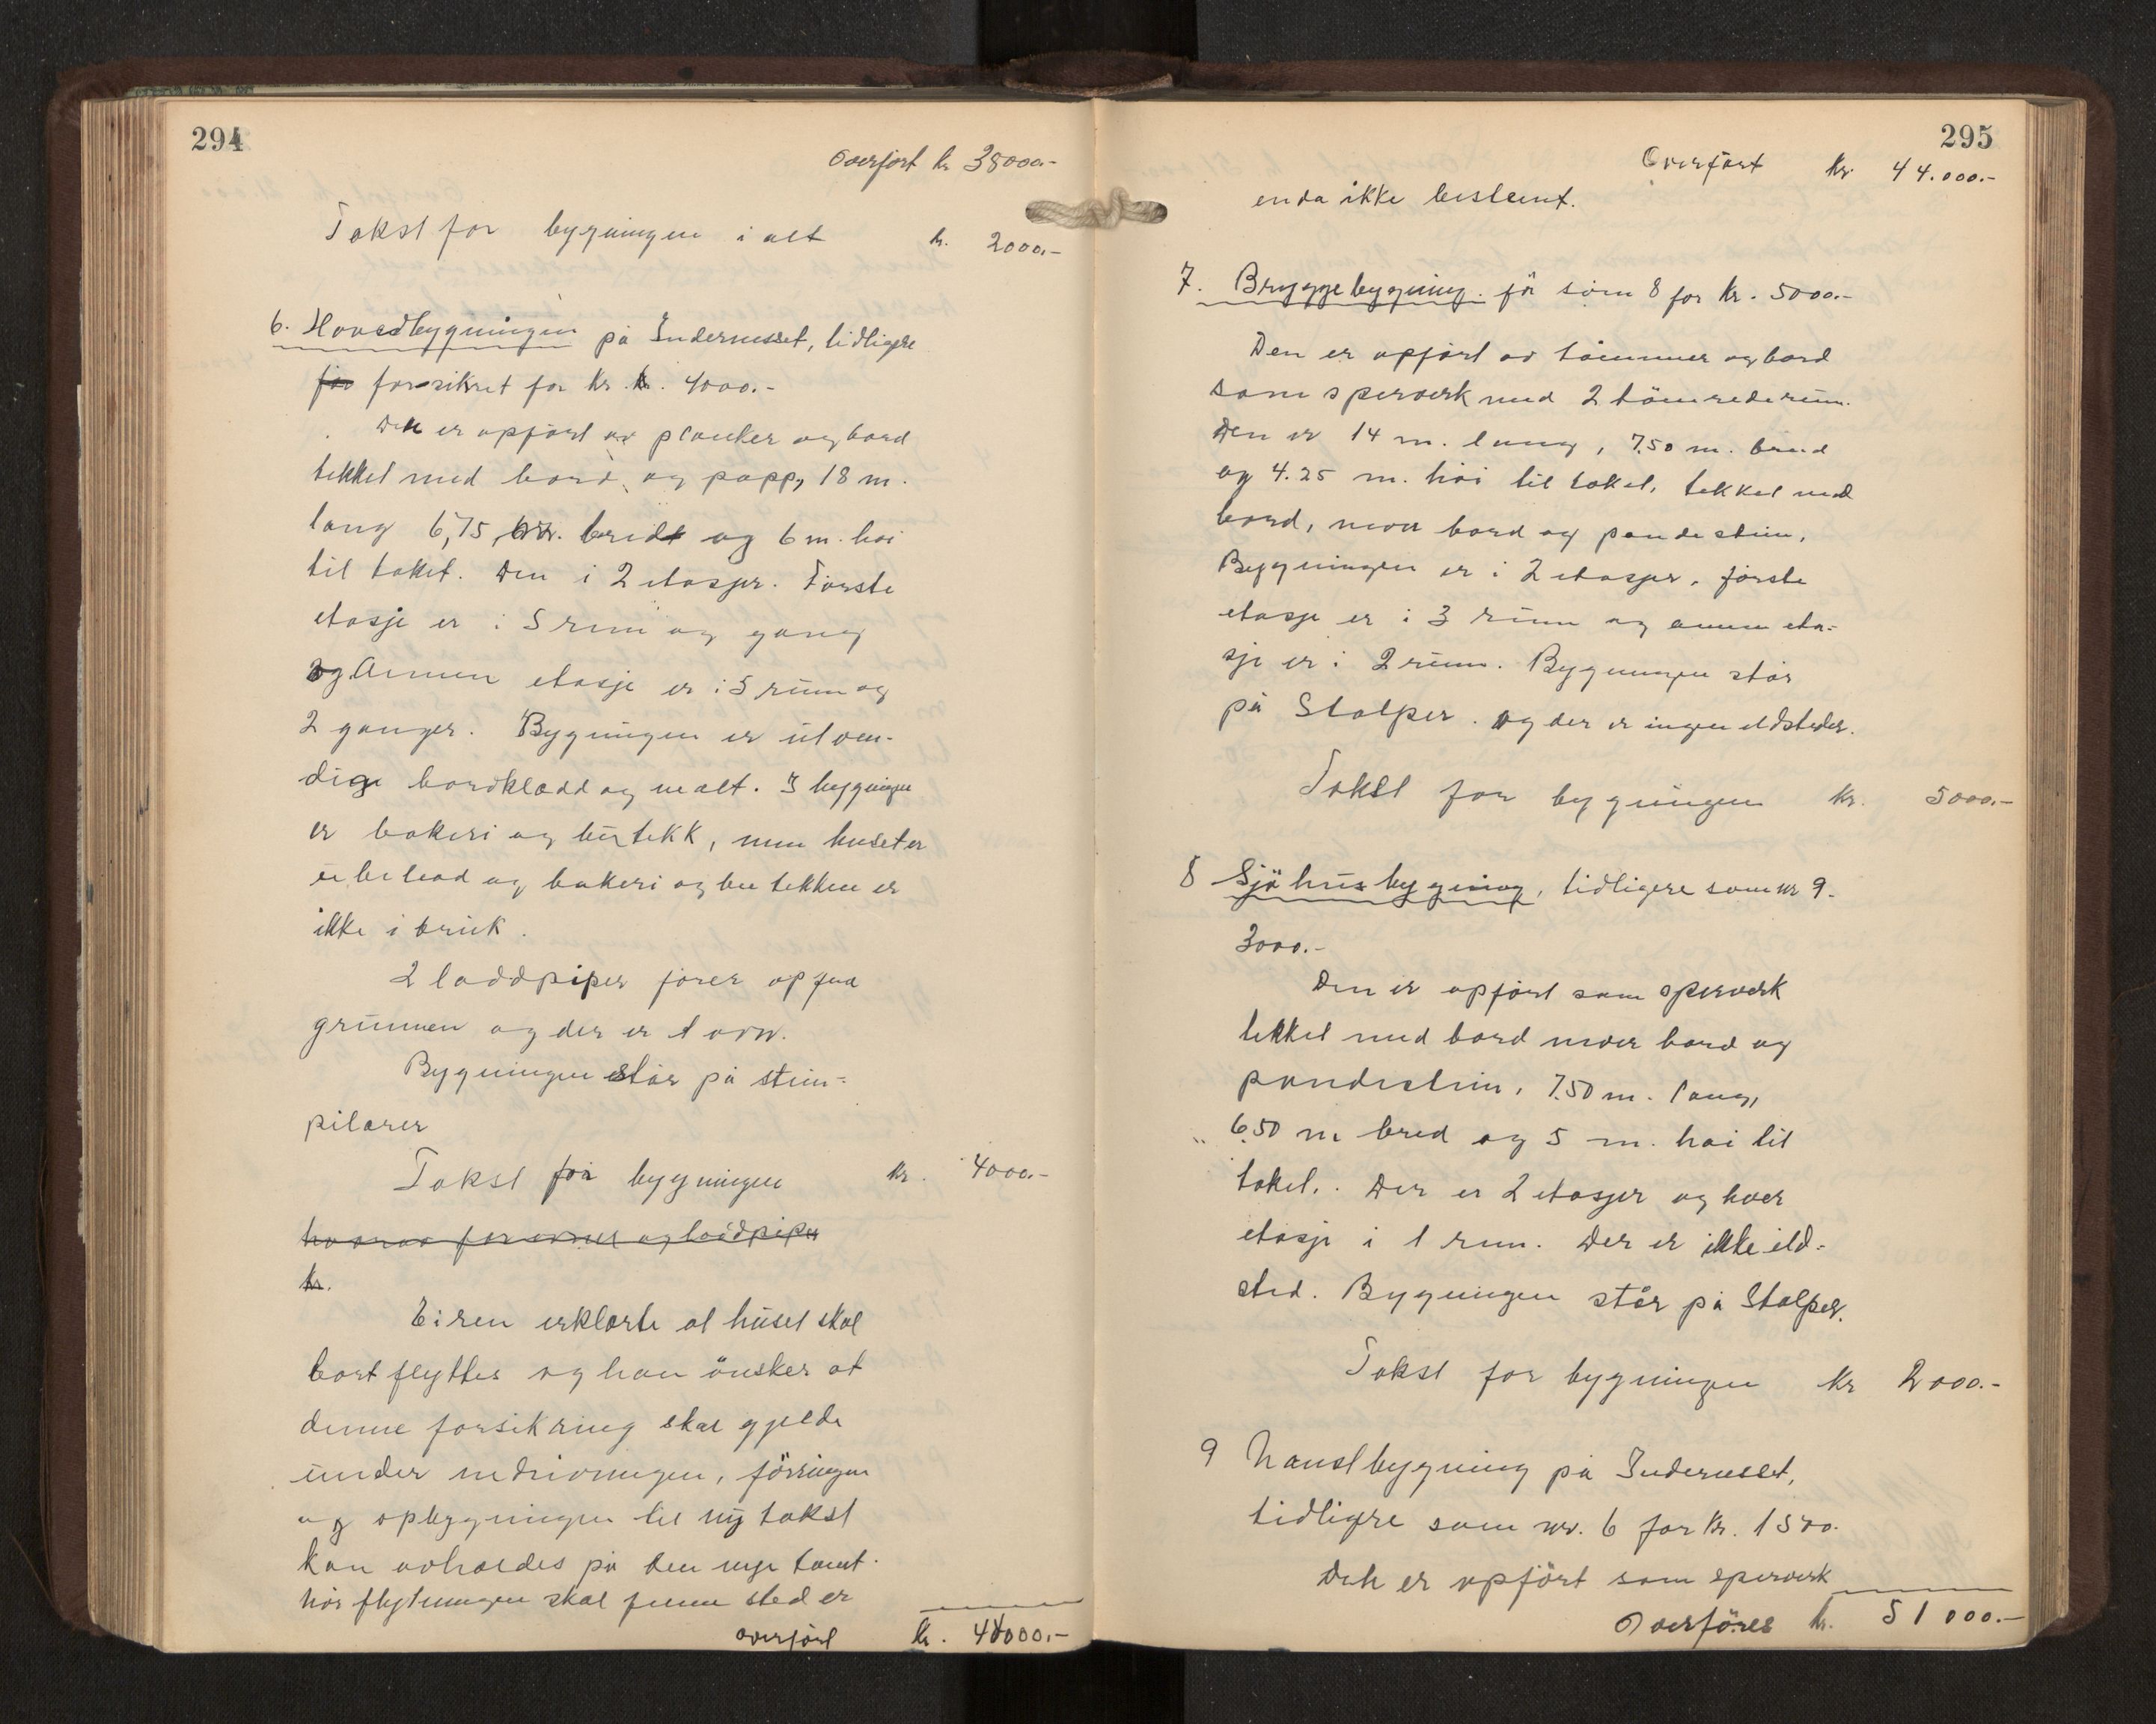 294
Overført kr 38000.-
Takst for bygningen i alt kr. 2000.-
6. Hovedbygningen på Indernesset, tidligere
for forsikret for kr. kr. 4000.-
Den er opført av planker og bord
tekket med bord og papp, 18 m.
lang 6,75 m. bredt og 6 m. høi
til taket. Den i 2 etasjer. Første
etasje er i 5 rum og gang
og Annen etasje er i 5 rum og
2 ganger. Bygningen er utven-
dige bordklædd og malt. I bygningen
er bakeri og butekk, men huset er
ubebead og bakeri og butekken er
ikke i bruk.
2 laddpiper fører op fra
grunnen og der er 1 ovn.
Bygningen står på stein-
pilarer
Takst for bygningen kr. 4000.-
hvorav for ovner og laddpiper
kr.
Eiren erklærte at huset skal
bortflyttes og han ønsker at
denne forsikring skal gjelde
under nedrivningen, føringen
og opbygningen til ny takst
kan avholdes på den nye tomt.
når flytningen skal finne sted er
overført kr. 44000.-
295
Overført kr. 44.000.-
enda ikke bestemt.
7. Bryggebygning. før som 8 for kr. 5000.-
Den er opført av tømmer og bord
som sperverk med 2 tömrede rum.
Den er 14 m. lang, 7.50 m. bred
og 4.25 m. høi til taket, tekket med
bord, never bord og pandestein,
Byggningen er i 2 etasjer, første
etasje er i 3 rum og annen eta-
sje er i 2 rum. Bygningen står
på Stolper. og der er ingen eldsteder.
Takst for bygningen kr. 5000.-
8 Sjöhusbygning, tidligere som nr 9.
3000.-
Den er opført som sperverk
tekket med bord never bord og
pandestein, 7.50 m. lang,
6.50 m bred og 5 m. høi til
taket. Der er 2 etasjer og hver
etasje i 1 rum. Der er ikke eld-
sted. Bygningen står på Stolper.
Takst for bygningen kr 2000.-
9 Naustbygning på Indernesset,
tidligere som nr. 6 for kr. 1500.
Den er opført som sperverk
Overføres kr. 51000.-